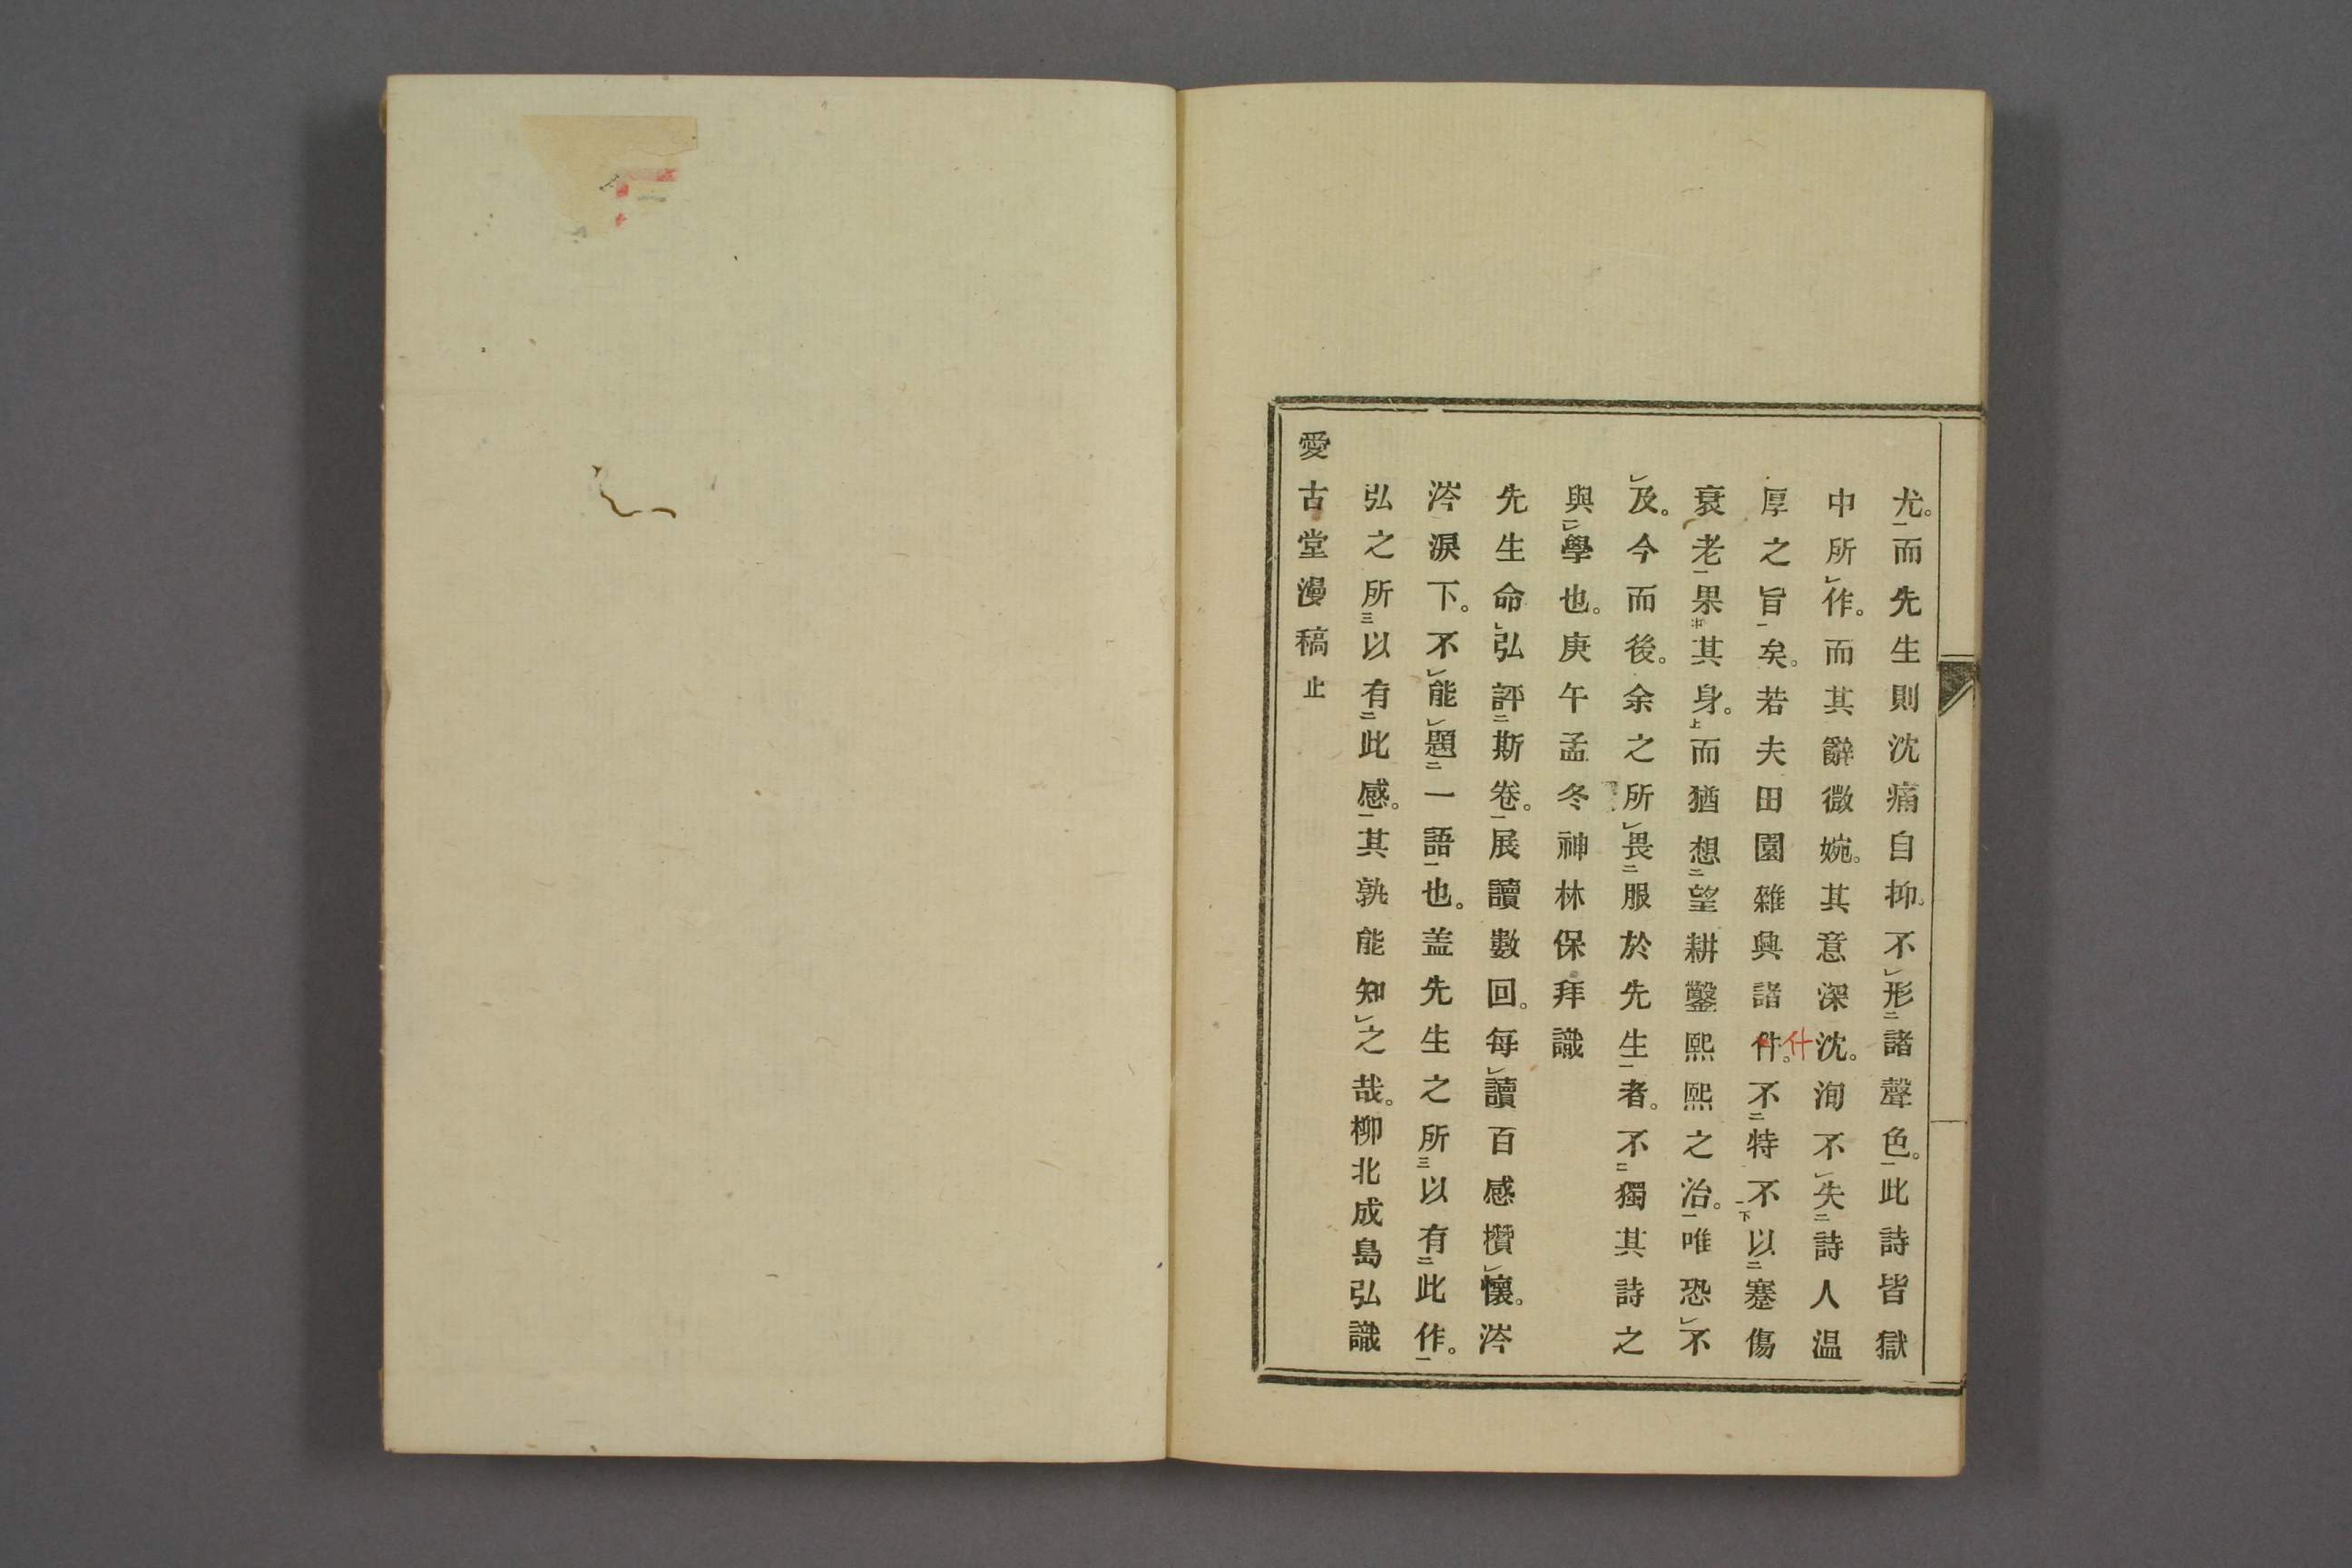 尤。而先生則沈痛自抑。不㆑形㆓諸聲色。㆒此詩皆獄
中所㆑作。而其辭微婉。其意深沈。洵不㆑失㆓詩人温
厚之旨㆒矣。若夫田園雜興諸件。不㆓特不㆒㆘以㆓蹇傷
什
衰老㆒果㆗其身。㆖而猶想㆓望耕鑿熙熙之治。㆒唯恐㆑不
㆑及。今而後。余之所㆑畏㆓服於先生㆒者。不㆓獨其詩之
與㆒㆑學也。庚午孟冬神林保拜識
先生命㆑弘評㆓斯卷。㆒展讀數回。每㆑讀百感攢㆑懷。涔
涔淚下。不㆑能㆑題㆓一語㆒也。盖先生之所㆔以有㆓此作。㆒
弘之所㆔以有㆓此感。㆒其孰能知㆑之哉。柳北成島弘識
愛古堂漫稿止